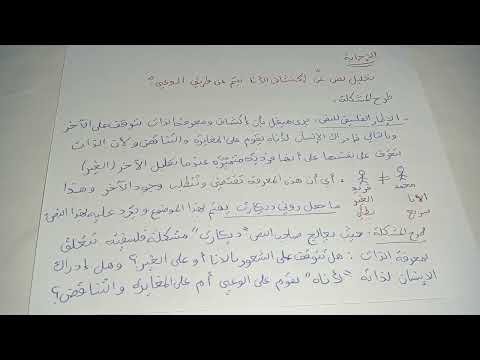 الإجابة
تحليل نص عن اكتشاف الأنا يتم عن طريق الوعي"
طرح المشكلة:
- الإطار الفلسفي للنص: يرى هيغل بأن اكتشاف ومعرفة الذات تتوقف على الآخر
وبالتالي فإدراك الإنسان لأناه يقوم على المغايرة والتناقض ولأن الذات
تتعرف على نفسها على أنها فردية متميزة عندما تقابل الآخر (الغير)
أي أن هذه المعرفة تقتضي وتتطلب وجود الآخر وهذا
محمد ≠ فريد
الأنا الغير
سريع بطيء
ما جعل روني ديكارت يهتم بهذا الموضوع ويرد عليه بهذا النص
طرح المشكلة: حيث يعالج صاحب النص "ديكارت" مشكلة فلسفية تتعلق
بمعرفة الذات: هل تتوقف على الشعور بالأنا أو على الغير؟ وهل إدراك
الإنسان لذاته "لأناه" يقوم على الوعي أم على المغايرة والتناقض؟